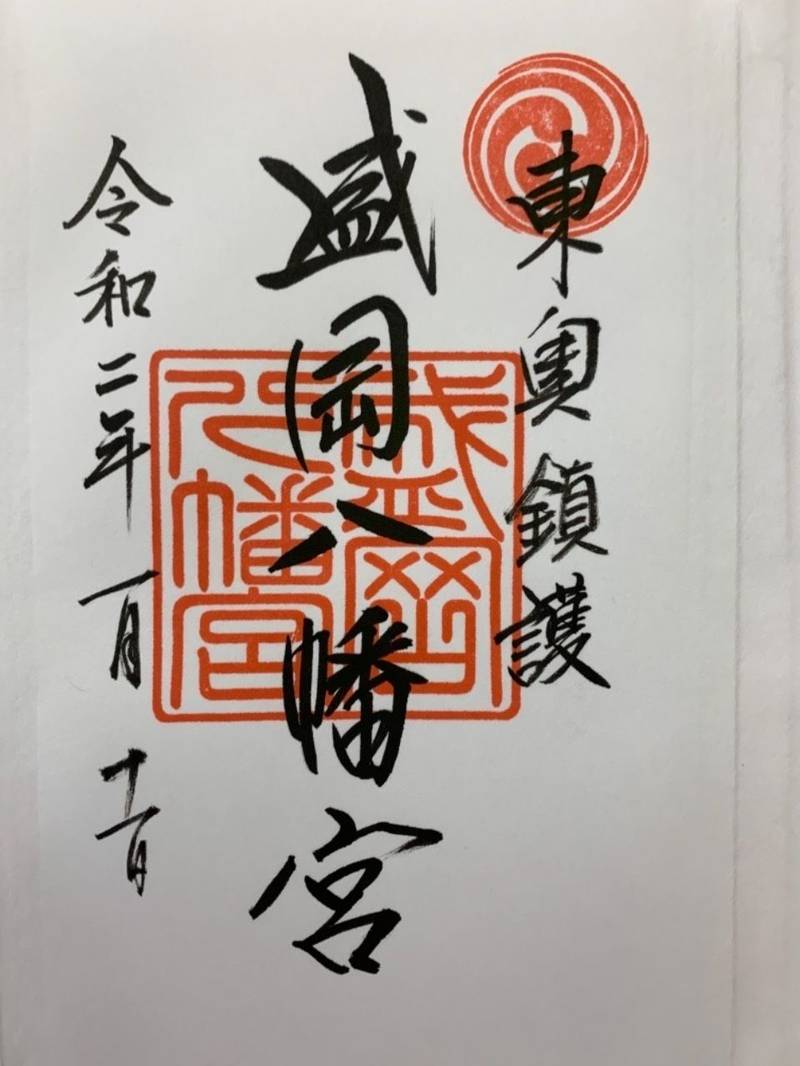 東奥鎮護
盛岡八幡宮
盛岡八幡宮
令和二年一月十一日